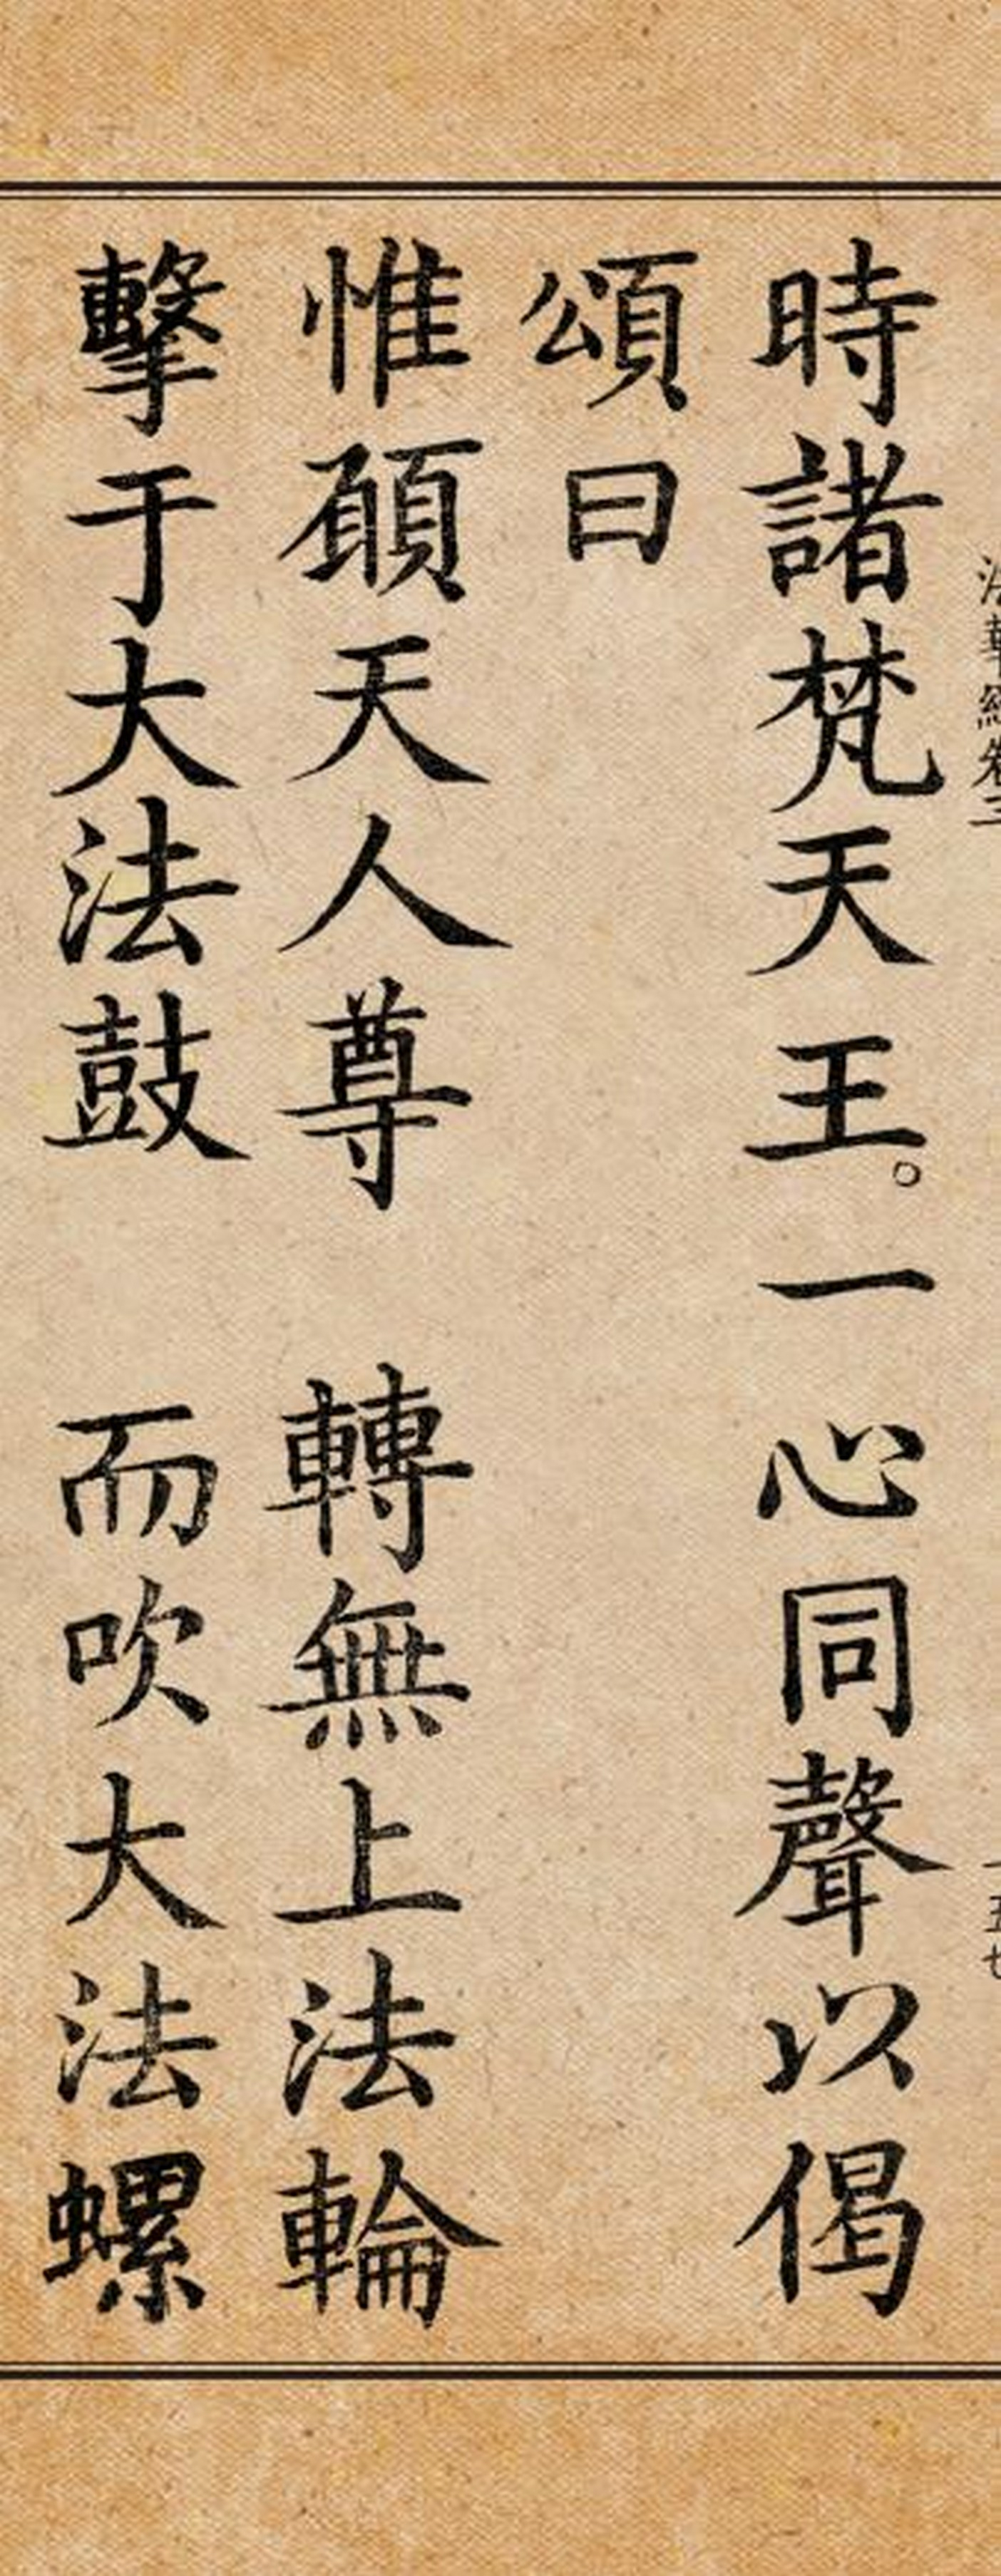 法華經卷三 一五七
時諸梵天王。一心同聲以偈
頌曰
惟願天人尊 轉無上法輪
擊于大法鼓 而吹大法螺